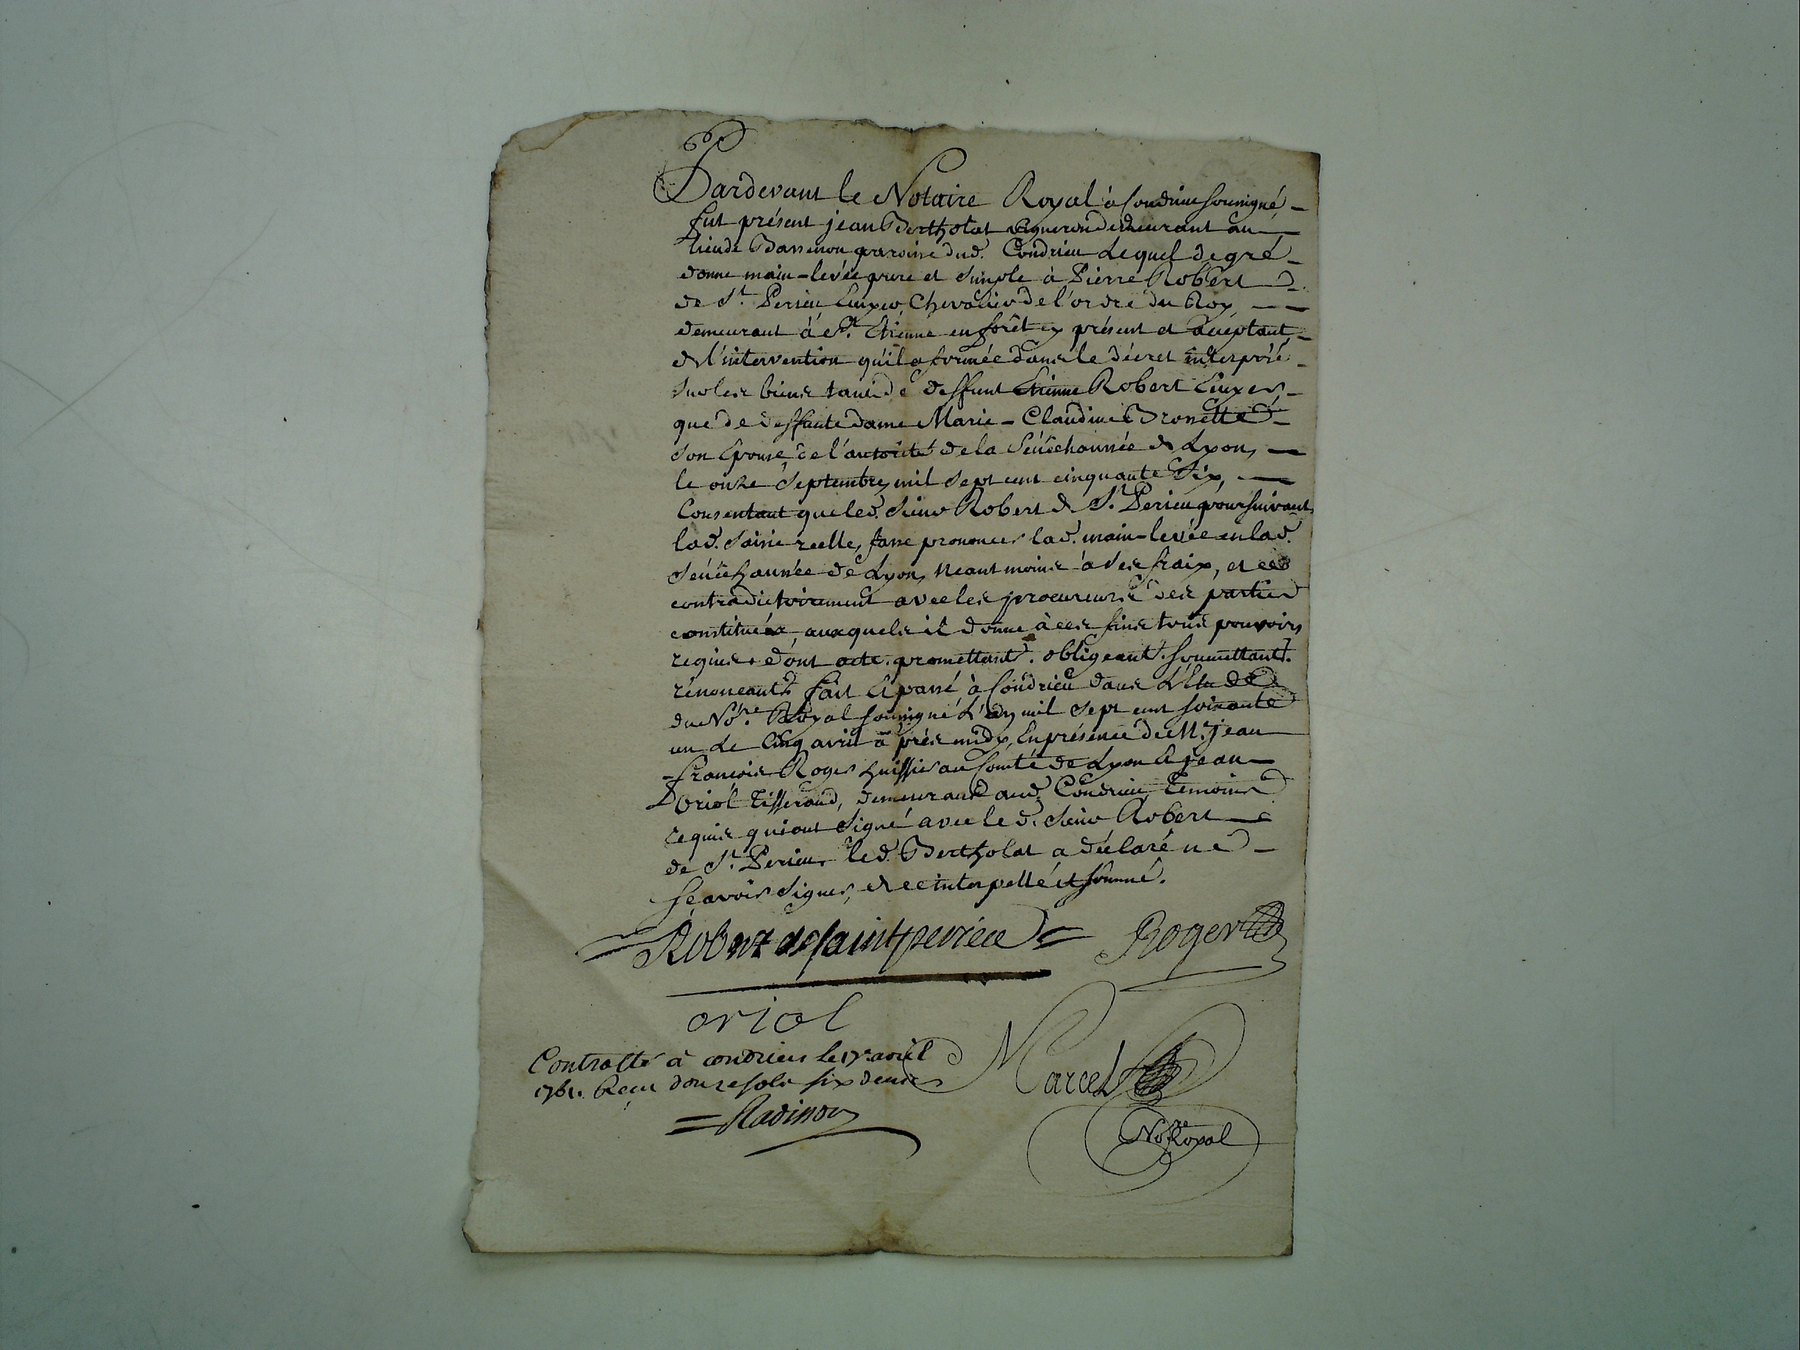 Pardevant le Notaire Royal à Condrieu soussigné
fut présent jean Bertholat vigneron demeurant au
lieu de Bassenon paroisse dud. Condrieu Lequel de gré
donne main-levée pure et simple à Pierre Robert
de St. Perieu Ecuyer, Chevalier de l'ordre du Roy,
demeurant à St. Etienne en forêt cy présent et acceptant,
de l'intervention qu'il a formée dans le décret interposé
sur les biens tant de deffunt Etienne Robert Ecuyer,
que de deffunte dame Marie-Claudine Bronette
son Epouse, de l'autorité de la Sénéchaussée de Lyon,
le onze Septembre, mil sept cent cinquante Six,
Consentant que led. Sieur Robert de St. Perieu poursuivant
lad. Saisie reelle, fasse prononcer lad. main-levée en lad.
Sénéchaussée de Lyon, neantmoins à ses fraix, et ce
contradictoirement avec les procureurs des parties
constituées, auxquels il donne à ces fins tous pouvoirs
requis. dont acte. promettant. obligeant. soumettant.
rénonceant. fait et passé à Condrieu dans L'Etude
du Nore. Royal soussigné L'an mil sept cent soixante
un Le Cinq avril à près midy, En présence de M. jean
françois Roger huissier au Comté de Lyon et jean
Oriol Tisserand, demeurant aud. Condrieu Temoins
requis qui ont signé avec le d. Sieur Robert
de St. Perieu, led. Bertholat a déclaré ne
sçavoir signer, de ce interpellé et sommé.
Robert de saint perieu Roger
oriol
Controllé à condrieu le 17e. avril
1761. Reçu douze sols six deniers
Marcel
Radisson
Nore Royal